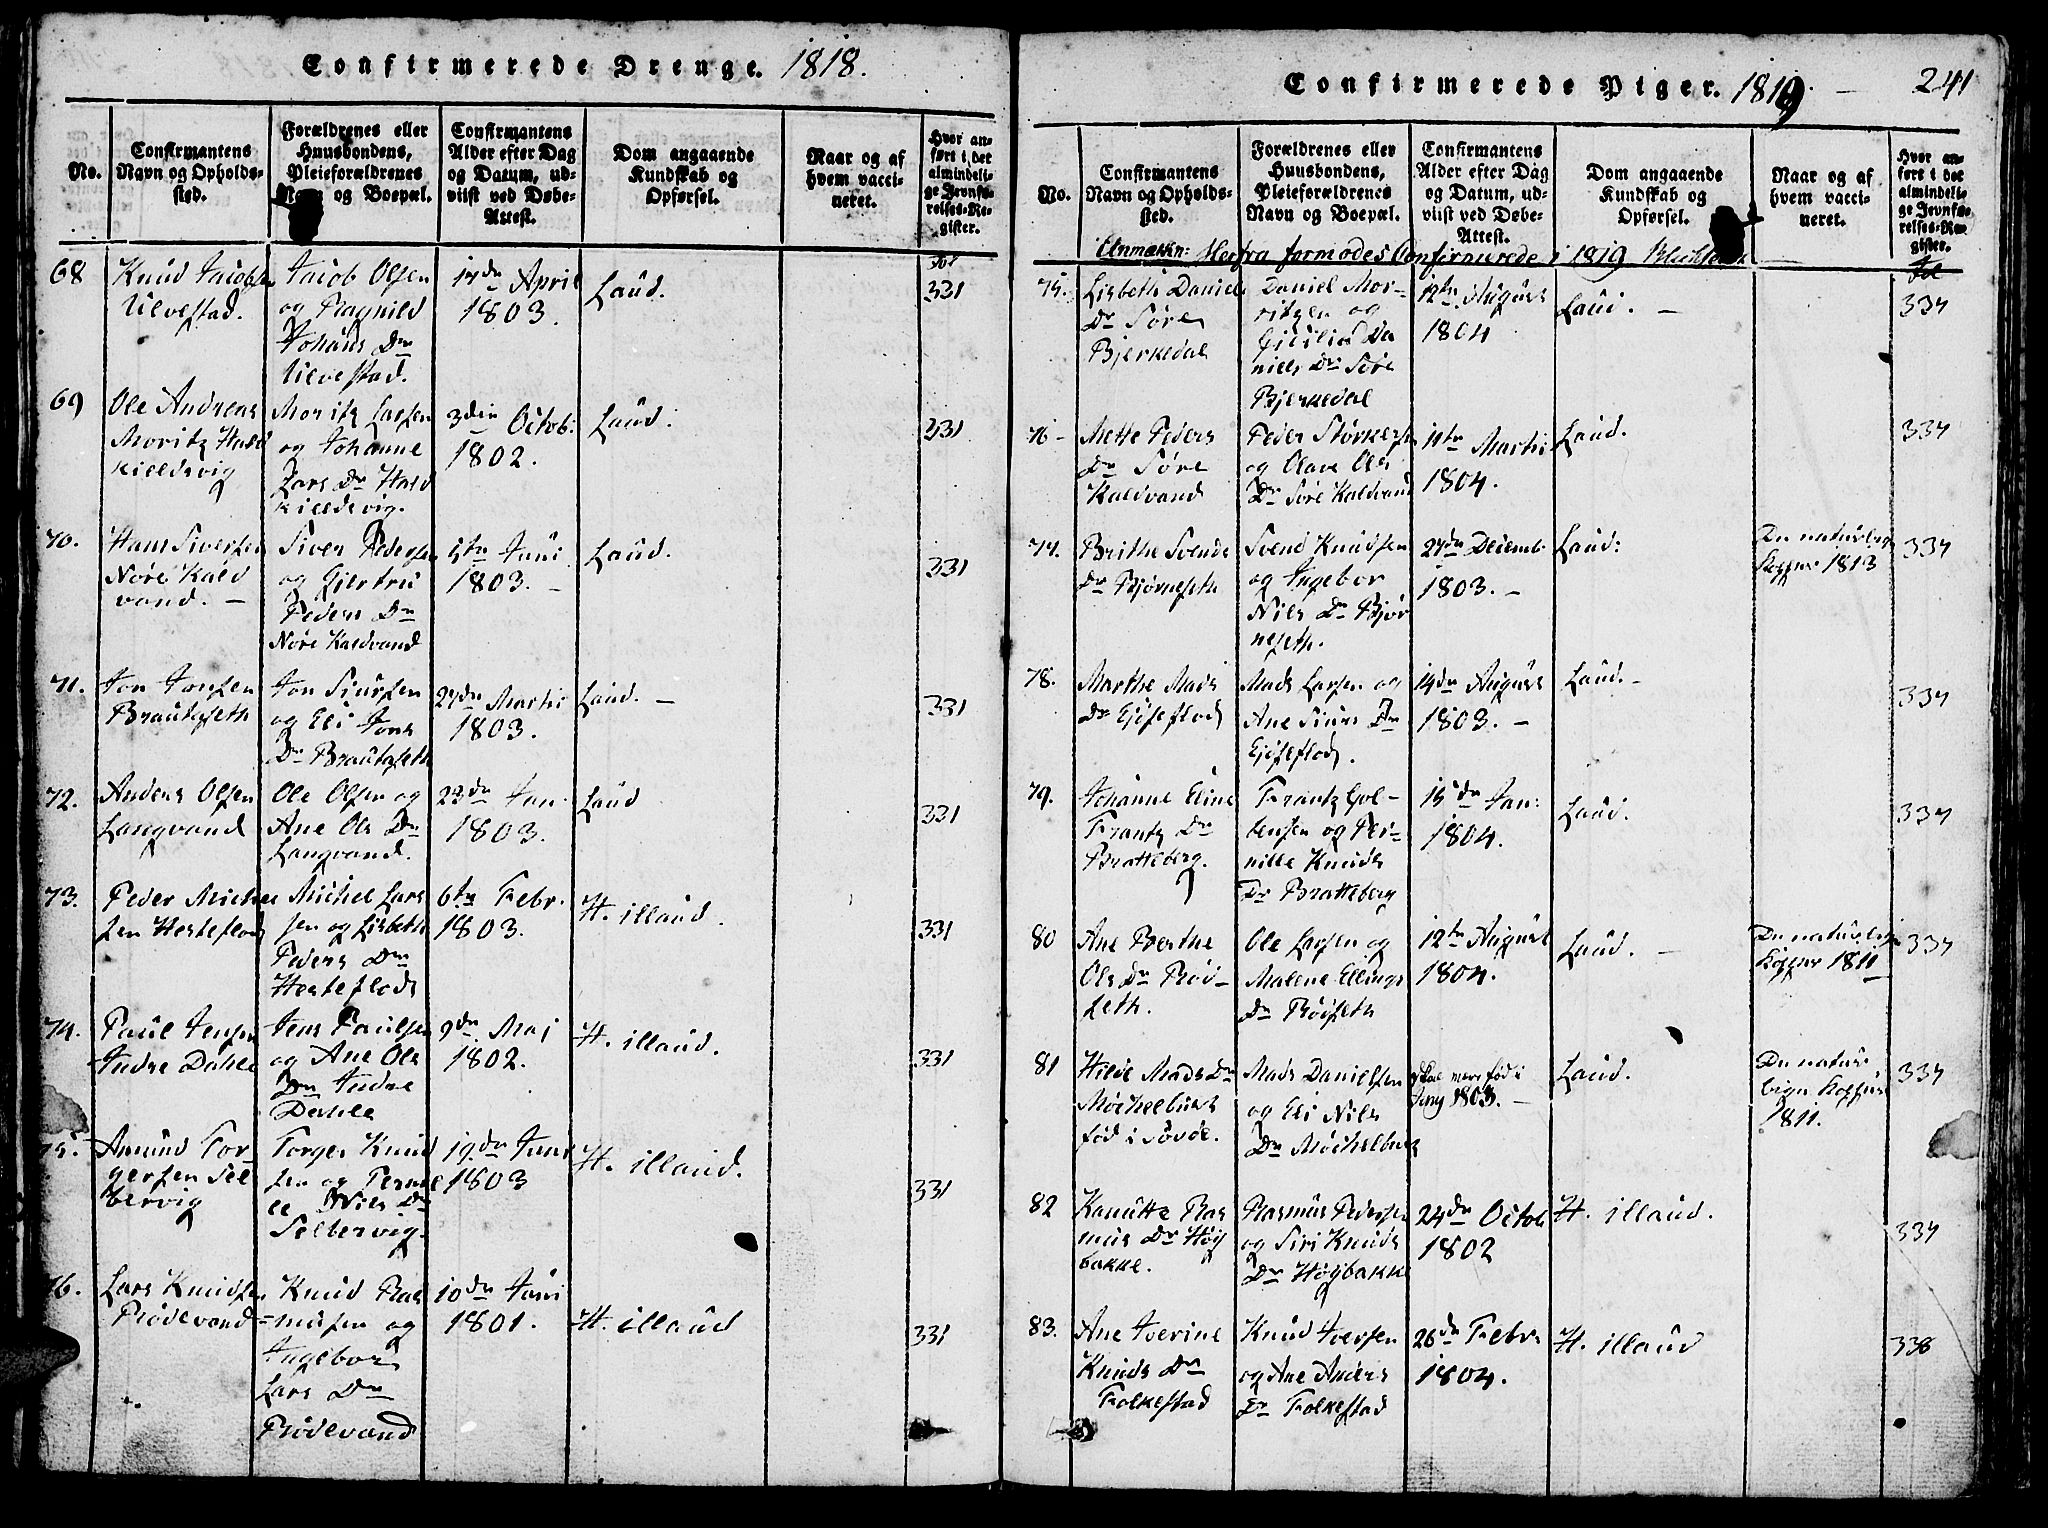 Confirmerede Drenge. 1818.
No.
Confirmantens
Navn og Opholds-
sted.
Forældrenes eller
Huusbondens,
Pleieforældrenes
Navn og Boepæl.
Confirmantens
Alder efter Dag
og Datum, ud-
viist ved Døbe-
Attest.
Dom angaaende
Kundskab og
Opførsel.
Naar og af
hvem vacci-
neret.
Hvor an-
ført i det
almindeli-
ge Jevnfø-
relses-Re-
gister.
68
Knud Jacobsen
Ulvestad.
Jacob Olsen
og Ragnild
Johans Dr
Ulvestad.
17de April
1803.
Laud.
331
69
Ole Andreas
Moritz Hald
kieldsvig
Moritz Larsen
og Johanne
Lars Dr Hald
kieldsvig.
3die Octob:
1802.
Laud.
331
70.
Hans Siversen
Nøre Kald
vand. -
Siver Pedersen
og Giertru
Peders Dr
Nøre Kaldvand
5te Juni
1803. -
Laud.
331
71.
Jon Jonsen
Brautaseth
Jon Siursen
og Eli Jons
Dr Brautaseth
27de Martii
1803.
Laud. -
331
72.
Anders Olsen
Langvand
Ole Olsen og
Ane Ols Dr
Langvand.
23de Jan.
1803.
Laud
331
73.
Peder Michel
sen Hesteflod
Michel Lars
sen og Lisbeth
Peders Dr
Hesteflods
6te Febr.
1803.
H. illaud.
331
74.
Paul Jensen
Indre Dahle
Jens Paulsen
og Ane Ols
Dr Indre
Dahle
9de Maj
1802.
H. illaud.
331
75.
Amund Tor-
gersen Sel
bervig
Torger Knud
sen og Pernil
le Nils Dr
Selbervig.
19.de Juni
1803
H. illaud.
331
76.
Lars Knudsen
Rødevand
Knud Ras
=musen og
Ingebor
Lars Dr
Rødevand
10de Juni
1801.
H. illaud
331
Confirmerede Piger. 1819. - 241
No.
Confirmantens
Navn og Opholds-
sted.
Forældrenes eller
Huusbondens,
Pleieforældrenes
Navn og Boepæl.
Confirmantens
Alder efter Dag
og Datum, ud-
viist ved Døbe-
Attest.
Dom angaaende
Kundskab og
Opførsel.
Naar og af
hvem vacci-
neret.
Hvor an-
ført i det
almindeli-
ge Jevnfø-
relses-Re-
gister.
Anmærkn: Herfra formodes Confirmerede i 1819
75.
Lisbeth Daniels
Dr Søre
Bjerkedal
Daniel Mor-
ritzen og
Cicilia Da
niels Dr Søre
Bjerkedal
12te August
1804
Laud. -
337
76-
Mette Peders
Dr Søre
Kaldvand
Peder Størkersen
og Olave Ols
Dr Søre Kaldvand
11te Martii
1804.
Laud.
337
77.
Brithe Svends
Dr Bjørneseth
Svend Knudsen
og Ingebor
Nils Dr Bjør
neseth.
27de Decemb.
1803. -
Laud:
De naturlige
Kopper 1813
337
78.
Marthe Mads
Dr Ejeseflod
Mads Larsen og
Ane Siurs Dr
Ejeseflod.
14de August
1803. -
Laud. -
337
79.
Johanne Eline
Frantz Dr
Bratteberg.
Frantz Gol-
lensen og Per-
nille Knuds
Dr Bratteberg
15de Jan:
1804.
Laud.
337
80
Ane Berthe
Ols Dr Røi-
seth.
Ole Larsen og
Malene Ellings
Dr Røiseth
12te August
1804.
Laud. -
De naturlige
Kopper 1811
337
81
Hilde Mads Dr
Møchelbust
fød i Søvde.
Mads Danielsen
og Eli Nils
Dr Møchelbust
skal være fød i
1803. -
Laud.
De natur-
lige Kopper
1811.
337
82
Kanutte Ras
mus Dr Høy
bakke.
Rasmus Pedersen
og Siri Knuds
Dr Høybakke
24de Octob
1802
H. illaud.
337
83.
Ane Iverine
Knuds Dr
Folkestad
Knud Iversen
og Ane Anders
Dr Folkestad
26de Febr.
1804.
H. illaud
338